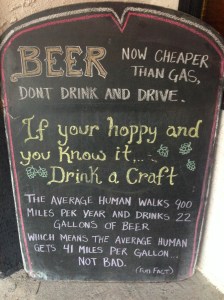 BEER NOW CHEAPER
THAN GAS,
DONT DRINK AND DRIVE.
If your hoppy and
you know it,..
Drink a Craft
THE AVERAGE HUMAN WALKS 900
MILES PER YEAR AND DRINKS 22
GALLONS OF BEER
WHICH MEANS THE AVERAGE HUMAN
GETS 41 MILES PER GALLON...
NOT BAD.
(FUN FACT)